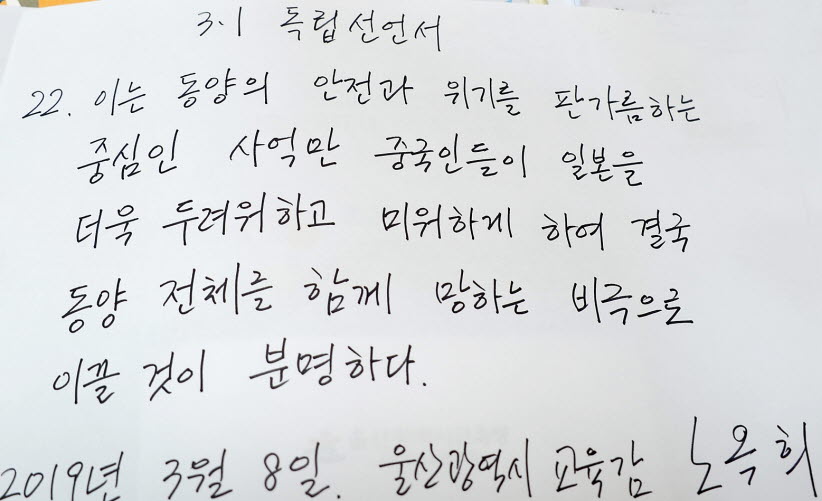 3.1 독립선언서
22. 이는 동양의 안전과 위기를 판가름하는
중심인 사억만 중국인들이 일본을
더욱 두려워하고 미워하게 하여 결국
동양 전체를 함께 망하는 비극으로
이끌 것이 분명하다.
2019년 3월 8일. 울산광역시 교육감 노옥희